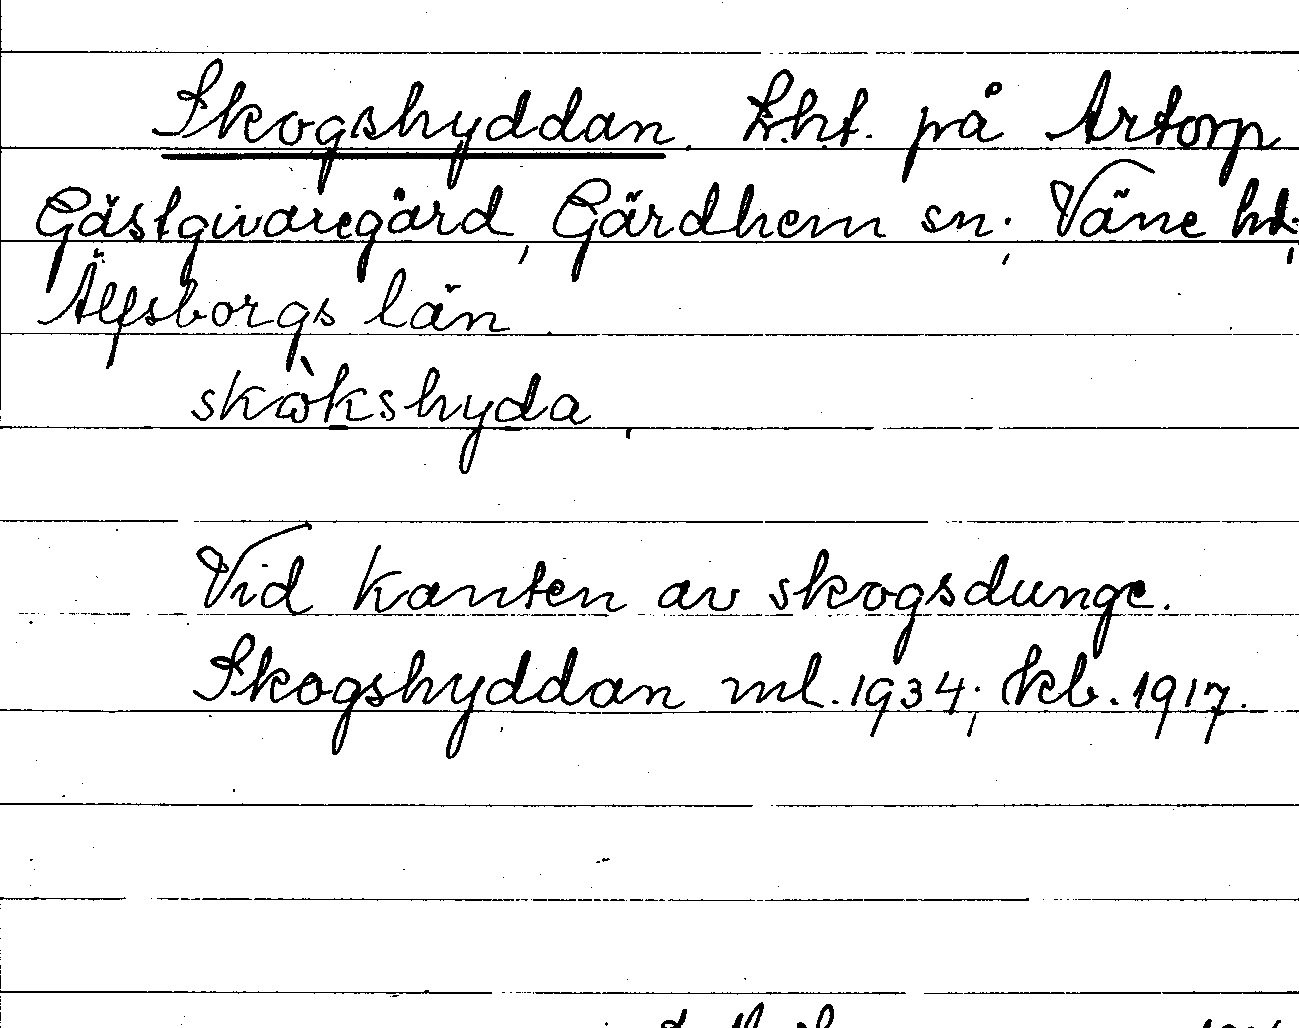 Skogshyddan. Lht. på Artorp
Gästgivaregård, Gärdhem sn; Väne hd;
Älfsborgs län.
skɷ̀kshyda,
Vid kanten av skogsdunge.
Skogshyddan ml. 1934; kb. 1917.